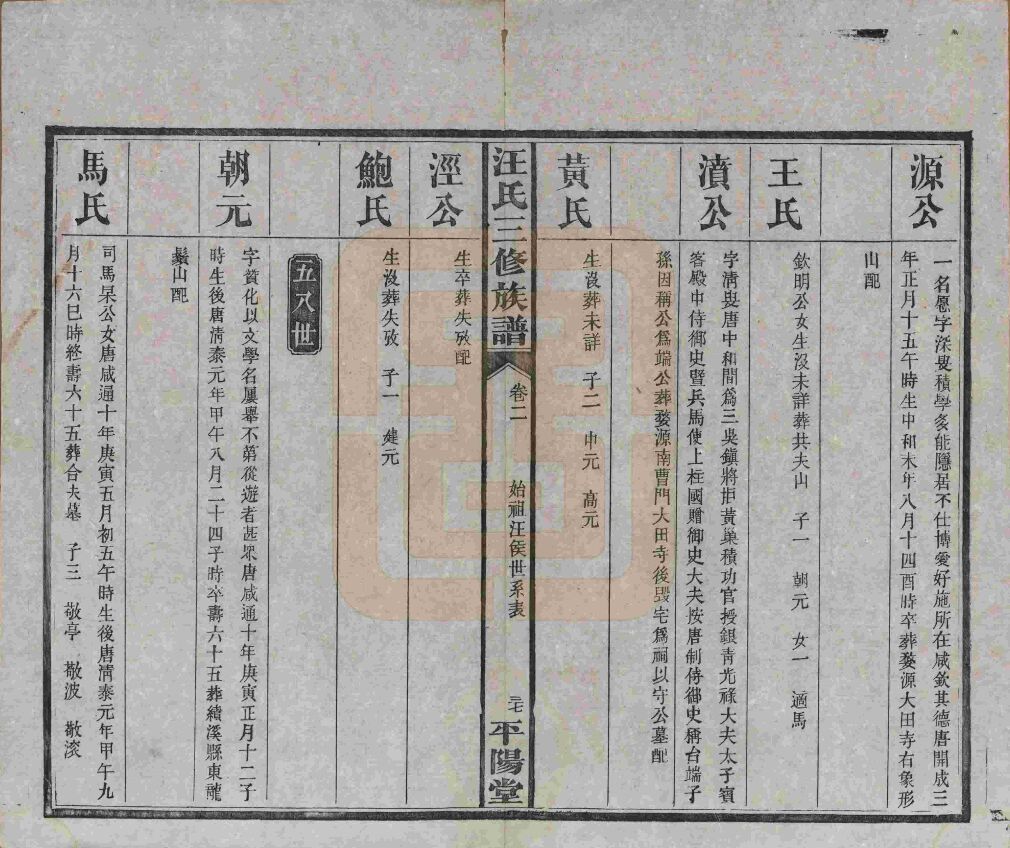 源公
一名愿字深叟積學多能隱居不仕博愛好施所在咸欽其德唐開成三
年正月十五午時生中和末年八月十四酉時卒葬婺源大田寺右象形
山配
王氏
欽明公女生沒未詳葬共夫山 子一 朝元 女一 適馬
濆公
字淸叟唐中和間爲三吳鎮將拒黃巢積功官授銀靑光祿大夫太子賓
客殿中侍御史暨兵馬使上柱國贈御史大夫按唐制侍御史稱台端子
孫因稱公爲端公葬婺源南曹門大田寺後毀宅爲祠以守公墓配
黃氏
生沒葬未詳 子二 中元 高元
汪氏三修族譜 卷二 始祖汪侯世系表 二七 平陽堂
涇公
生卒葬失攷配
鮑氏
生沒葬失攷 子一 建元
五八世
朝元
字贊化以文學名屢舉不第從遊者甚衆唐咸通十年庚寅正月十二子
時生後唐淸泰元年甲午八月二十四子時卒壽六十五葬績溪縣東龍
鬚山配
馬氏
司馬杲公女唐咸通十年庚寅五月初五午時生後唐淸泰元年甲午九
月十六巳時終壽六十五葬合夫墓 子三 敬亭 敬波 敬滚